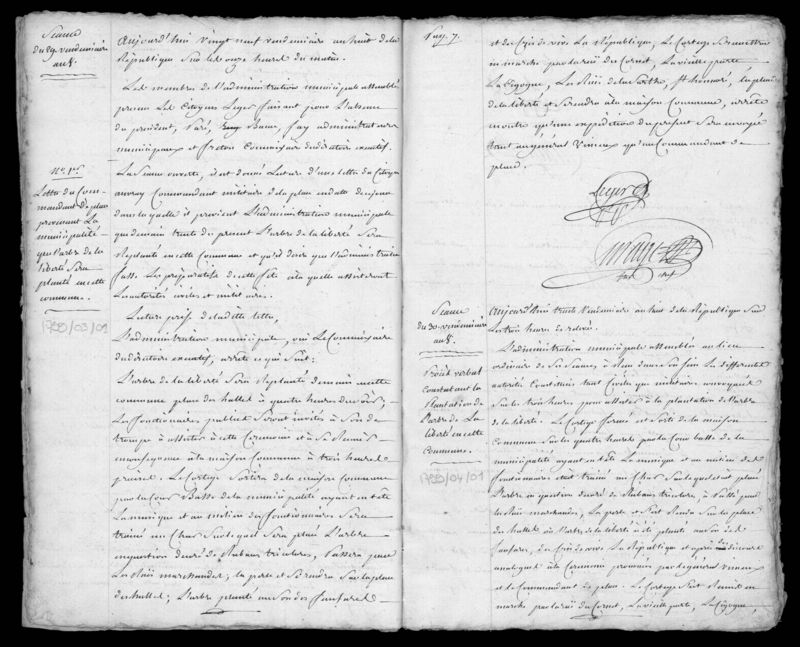 Seance
du 29 vendemiaire
an 8.
Aujourd'hui vingt neuf vendemiaire an huit de la
Republique Sur les onze heures du matin.
Les membres de l'administration municipale assemblés
presens Les Citoyens Leger faisant pour l'absence
du president, Paré, Baume, fay administrateurs
municipaux et freton Commissaire du directoire executif.
La Seance ouverte, il est donné Lecture d'une lettre du Citoyen
auvray Commandant militaire de la place en datte de ce jour
dans laquelle il previent l'administration municipale
que demain trente du present l'arbre de la liberté Sera
Replanté en cette Commune et qu'il desire que l'administration
fasse Les preparatifs de cette fête à la quelle assisteront
Les autorités civiles et militaires.
No. 1er.
Lettre du Com-
mandant de place
prevenant La
municipalité
que l'arbre de la
liberté Sera
planté en cette
commune.
1799/03/01
Lecture prise de ladite lettre,
L'administration municipale, oui Le Commissaire
du directoire executif, arrête ce qui Suit:
L'arbre de la liberté Sera Replanté demain en cette
commune place des halles à quatre heures du soir;
Les fonctionaires publics Seront invités à Son de
trompe à assister à cette Ceremonie et à Se Reunir
en consequence à la maison Commune à trois heures
precises. Le Cortege Sortira de la maison Commune
par la Cour Basse de la municipalité ayant en tête
La musique et au milieu des fonctionaires Sera
trainé un Char Sur lequel Sera placé L'arbre
en question decoré de Rubans tricolores, passera par
Les Rues marchandes, la porte et Se rendra Sur la place
des halles; L'arbre planté au Son des fanfares
Pag. 7.
et des Cris de vive La Republique, Le Cortege Se remettra
en marche par la rue du Cornet, La vieille porte
La Cigogne, La Rue de la parthe, St. honoré, la place
de la liberté et Se rendra à la maison Commune, arrête
en outre qu'une expedition du present Sera envoyée
tant au général Vimeux qu'au Commandant de
place.
Leger
Seance
du 30 vendemiaire
an 8.
Aujourd'hui trente Vendemiaire an huit de la Republique Sur
Les trois heures de relevée.
L'administration municipale assemblée au lieu
ordinaire de Ses Seances, à Reçu dans Son Sein Les differentes
autorités Constituées tant Civiles que militaires convoquées
Sur les trois heures pour assister à la plantation de l'arbre
de la liberté. Le Cortege formé est Sorti de la maison
Commune Sur les quatre heures par la Cour basse de la
municipalité ayant en tête La musique et au milieu des
fonctionaires etait trainé un Char Sur lequel etait placé
L'arbre en question decoré de Rubans tricolores, à Passé par
Les Rues marchandes, La porte et S'est Rendu Sur la place
des halles où l'arbre de la liberté à été planté au Son des
fanfares, des Cris de vive La Republique et après un discours
analogue à la Ceremonie prononcé par le général Vimeux
et le Commandant de place. Le Cortege S'est Remis en
marche par la rue du Cornet, La vieille porte, La Cigogne,
Procès verbal
Constatant la
Plantation de
l'arbre de La
liberté en cette
Commune.
1799/04/01